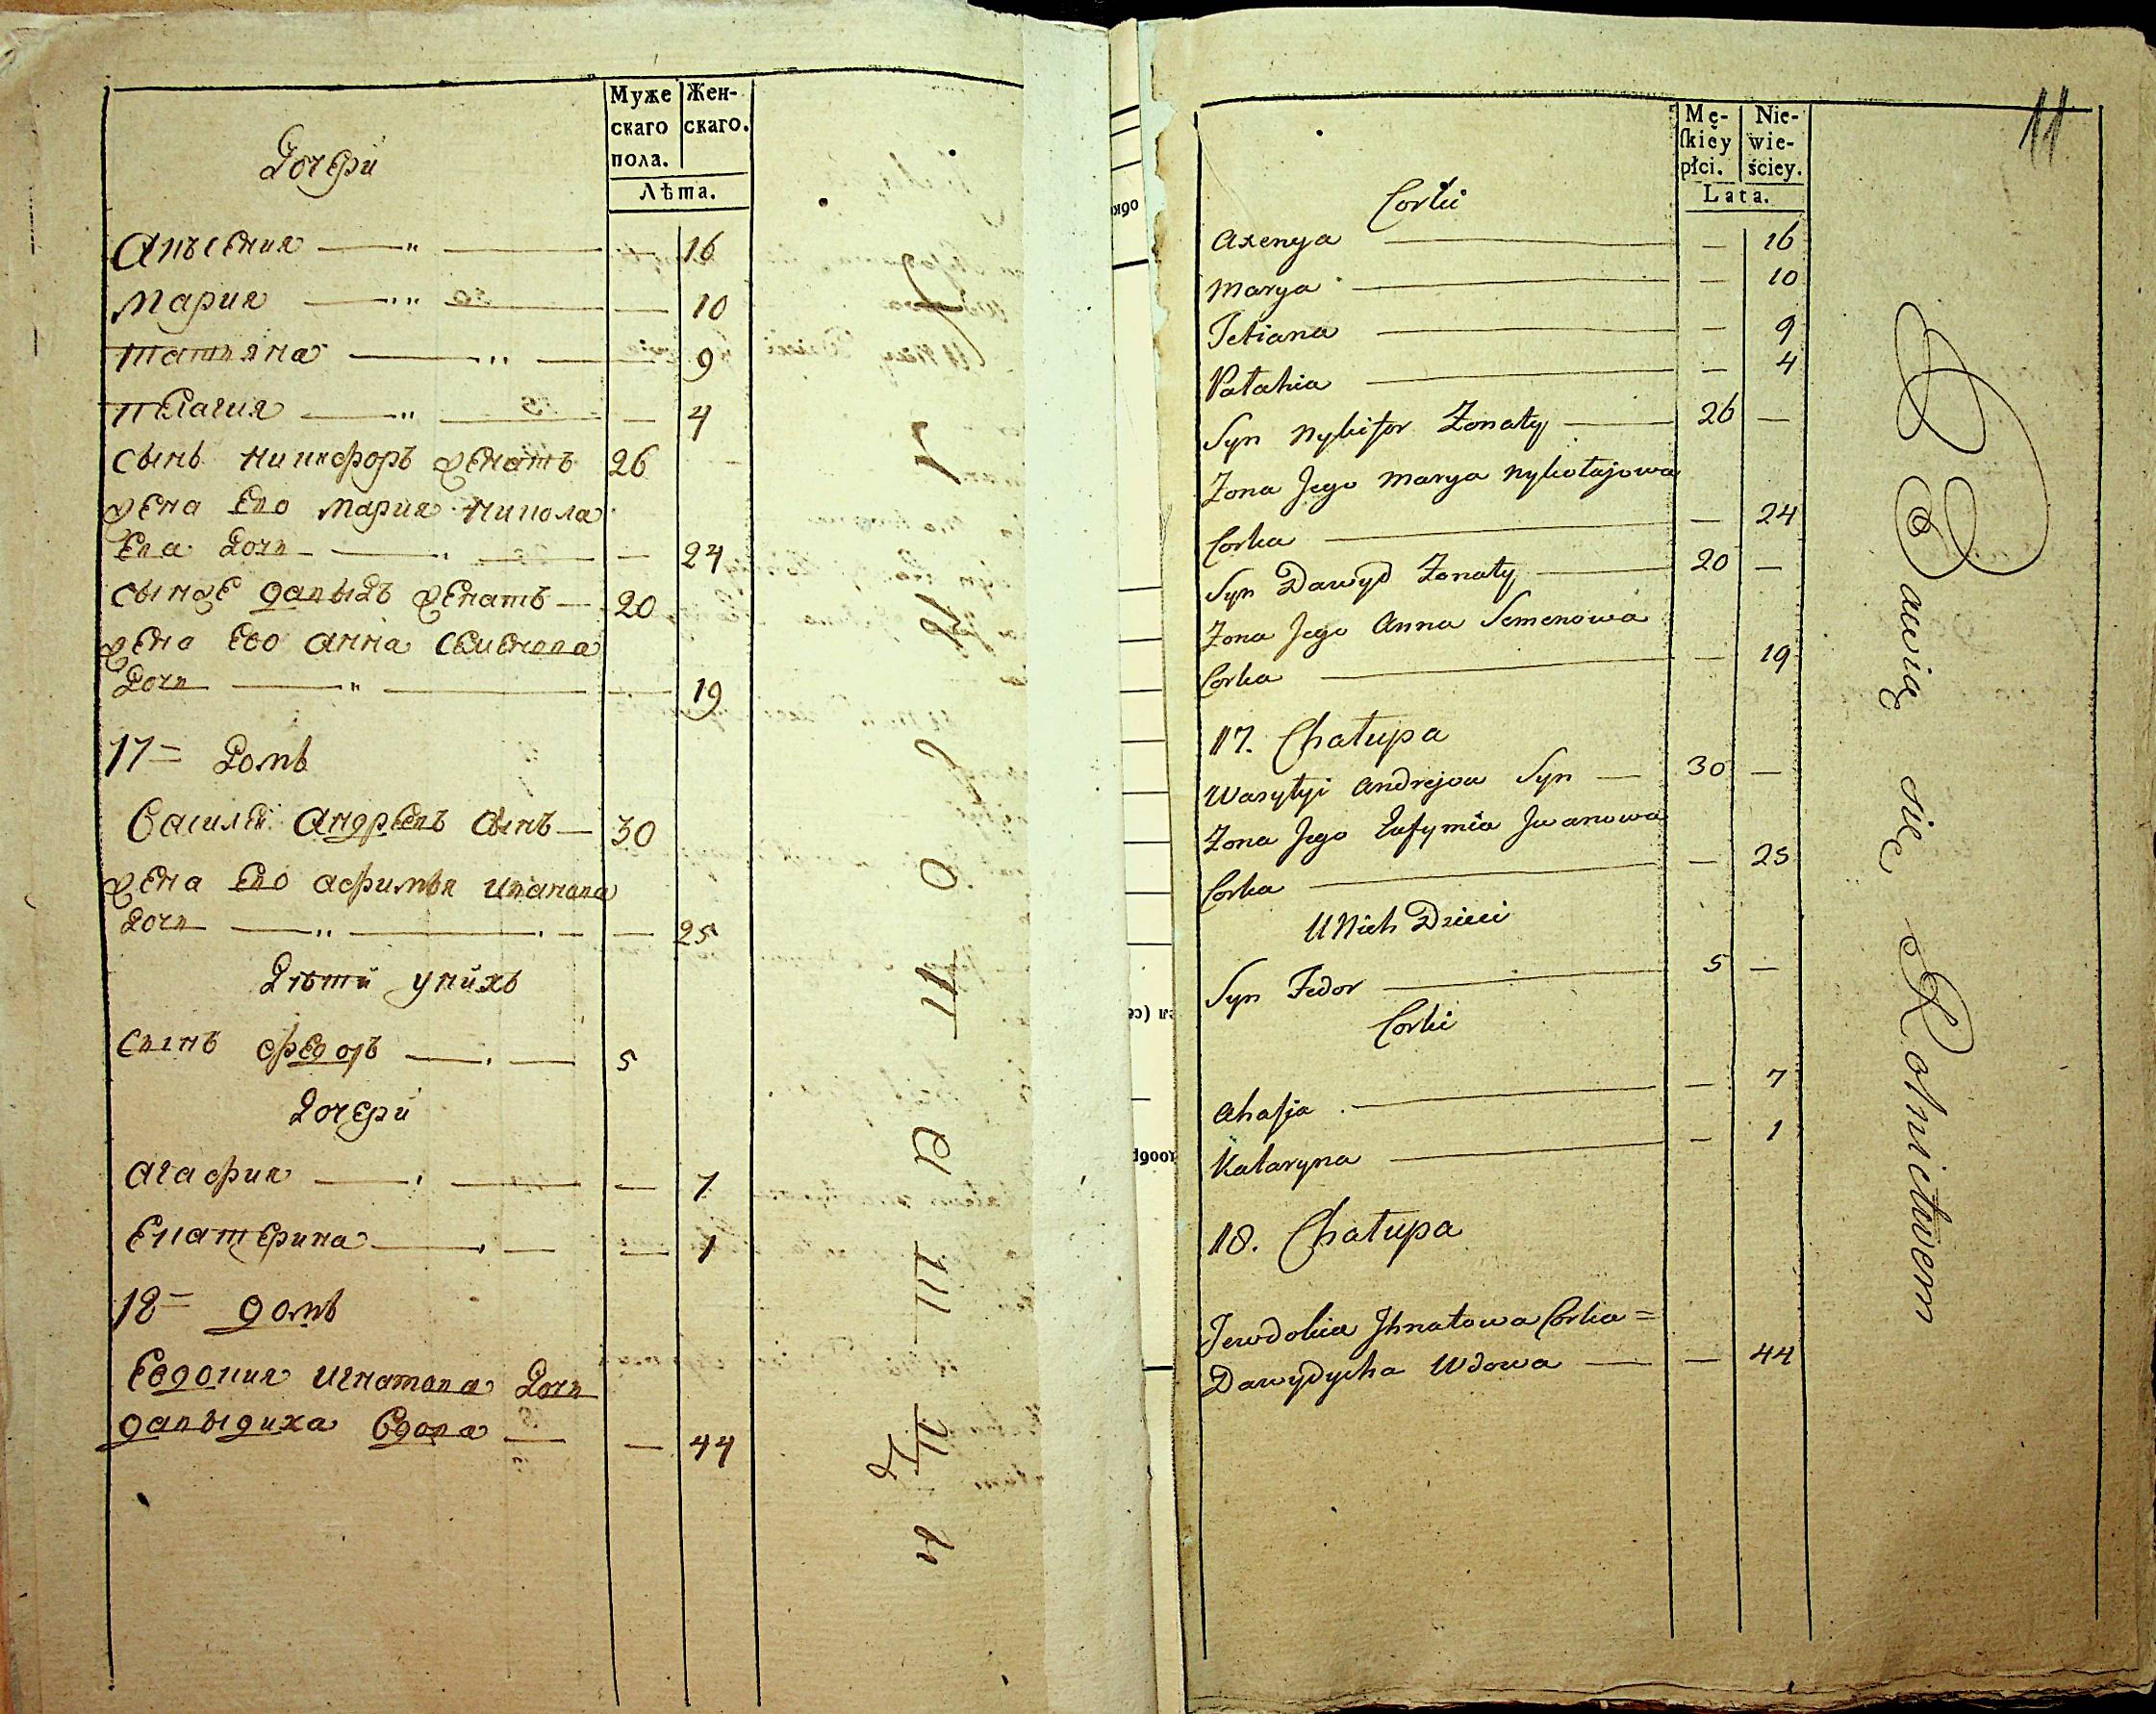 Муже Жен-
скаго скаго.
пола.
Лѣта.
Дочери
Аксения — 16
Мария — 10
Татияна — 9
Пелагия — 4
Сынъ Никифоръ женатъ 26 —
жена Ево Мария Никола
Ева дочь — 24
Сынже Давыдъ женатъ — 20
жена Ево Анна Семенова
дочь — 19
17= Домъ
Василей Андреевъ Сынъ — 30
жена Ево Афимья Иванова
дочь — 25
Дѣти у нихъ
Сынъ Федоръ — 5
Дочери
Агафия — 7
Екатерина — 1
18= домъ
Евдокия Игнатова Дочь
Давыдиха Вдова — 44
11
Mę- Nie-
ſkiéy wie-
płci. ściey.
Lata.
Corki
Axenya — 16
Marya — 10
Tetiana — 9
Pałahia — 4
Syn Nykifor Żonaty — 26 —
Żona Jego Marya Nykołajowa
Corka — 24
Syn Dawyd Żonaty — 20 —
Żona Jego Anna Semenowa
Corka — 19
17. Chałupa
Wasyłyi Andrejow Syn — 30 —
Żona Jego Eufymia Jwanowa
Corka — 25
U Nich Dzieci
Syn Fedor — 5 —
Corki
Ahafia — 7
Kataryna — 1
18. Chałupa
Jewdokia Jhnatowa Corka =
Dawydycha Wdowa — 44
Bawią się Rolnictwem